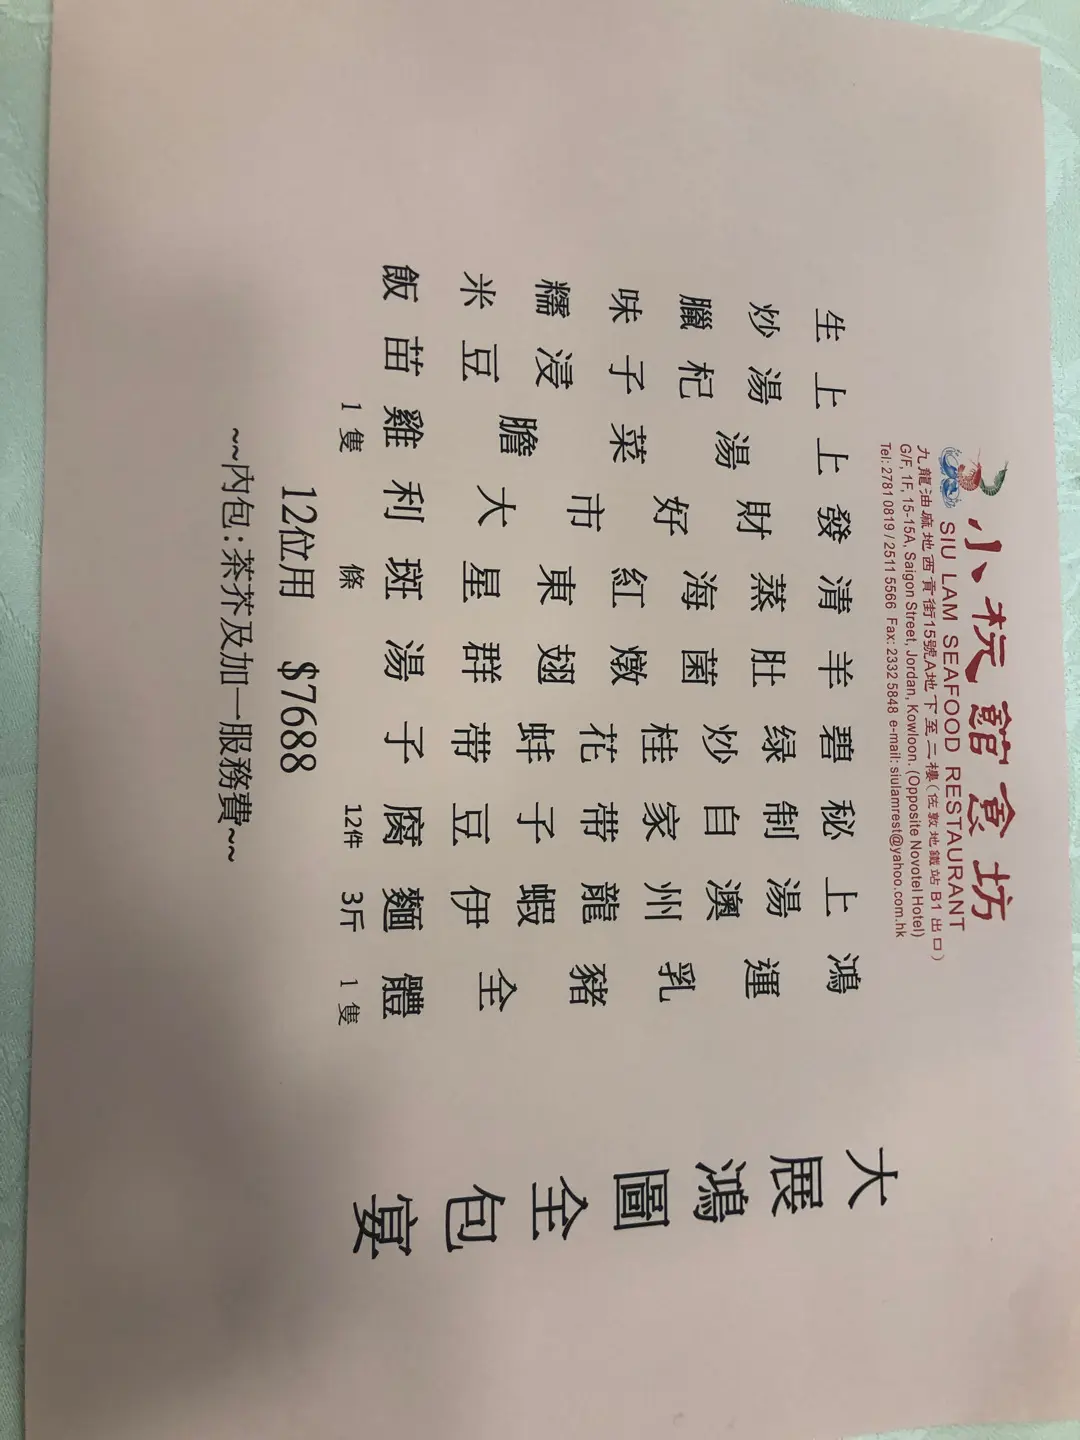 小館食坊
SIU LAM SEAFOOD RESTAURANT
九龍油麻地西貢街15號A地下至二樓(佐敦地鐵站B1出口)
G/F, 1F, 15-15A, Saigon Street, Jordan, Kowloon. (Opposite Novotel Hotel)
Tel: 2781 0819 / 2511 5566 Fax: 2332 5848 e-mail: siulamrest@yahoo.com.hk
大展鴻圖全包宴
鴻運乳豬全體 1隻
上湯澳州龍蝦伊麵 3斤
秘制自家带子豆腐 12件
碧绿炒桂花蚌带子
羊肚菌燉翅群湯
清蒸海紅東星斑 條
發財好市大利
上湯菜膽雞 1隻
上湯杞子浸豆苗
生炒臘味糯米飯
12位用 $7688
~~內包:茶芥及加一服務費~~